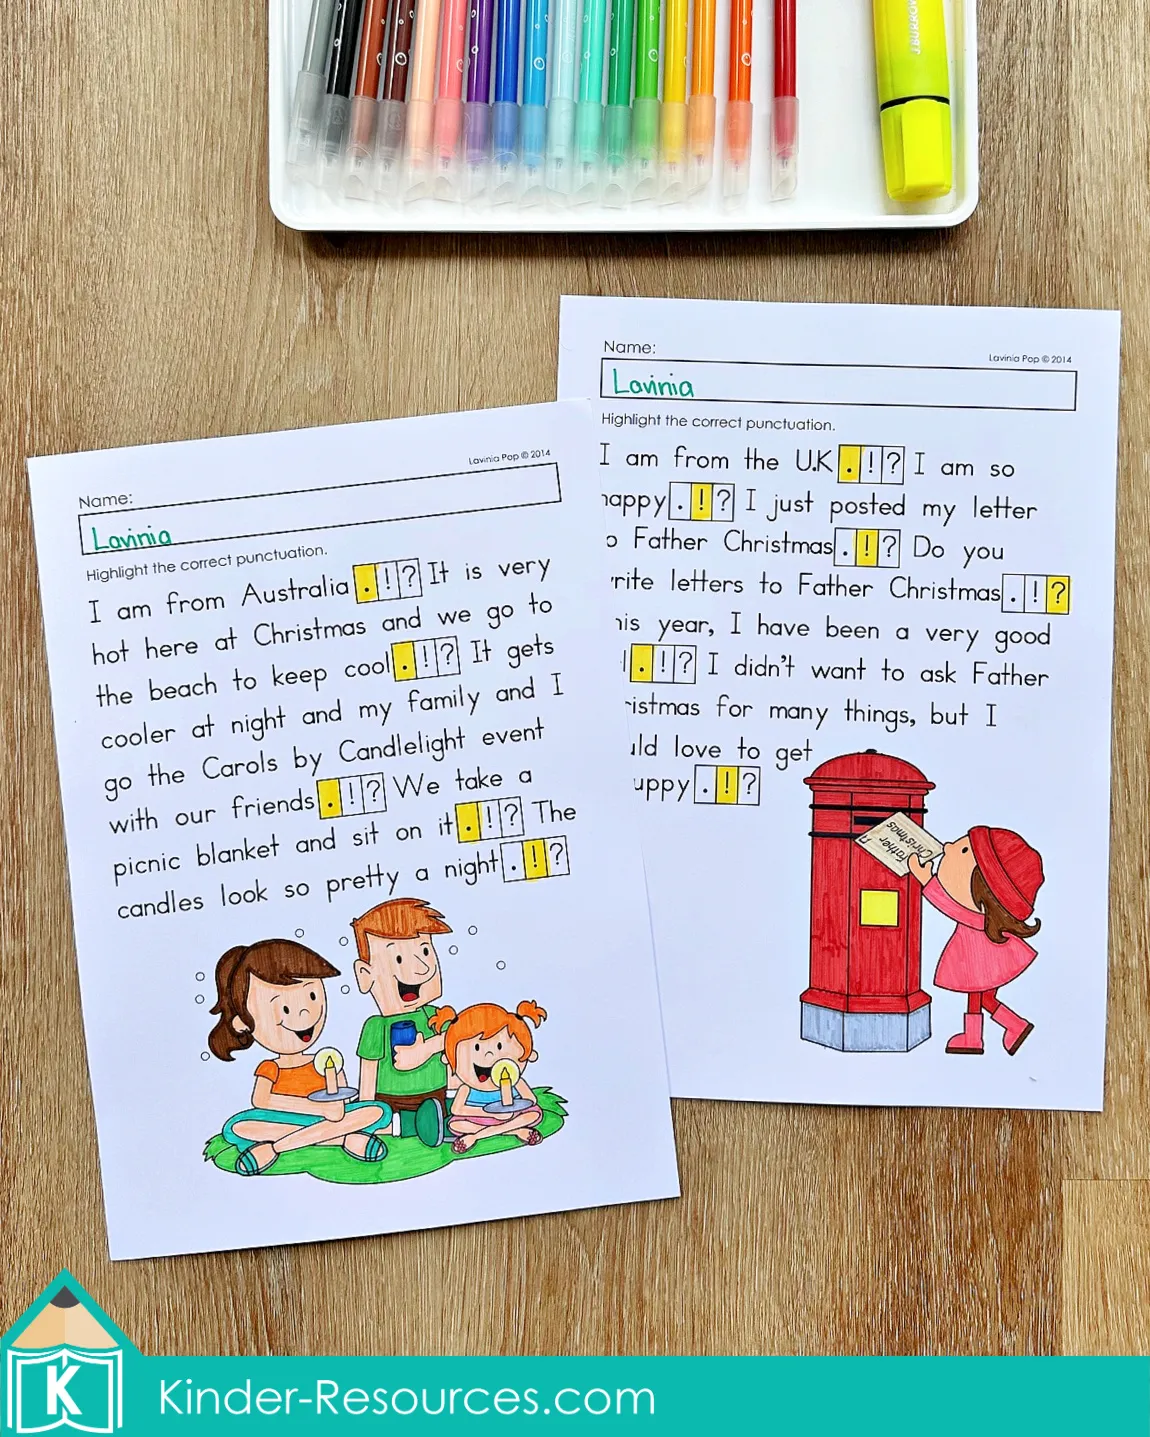 Lavinia Pop © 2014
Name:
Lavinia
Highlight the correct punctuation.
I am from Australia . ! ? It is very
hot here at Christmas and we go to
the beach to keep cool . ! ? It gets
cooler at night and my family and I
go the Carols by Candlelight event
with our friends . ! ? We take a
picnic blanket and sit on it . ! ? The
candles look so pretty a night . ! ?
Name:
Lavinia Pop © 2014
Lavinia
Highlight the correct punctuation.
I am from the U.K . ! ? I am so
happy . ! ? I just posted my letter
Father Christmas . ! ? Do you
letters to Father Christmas . ! ?
year, I have been a very good
. ! ? I didn't want to ask Father
for many things, but I
love to get
. ! ?
Father
Christmas
K
Kinder-Resources.com